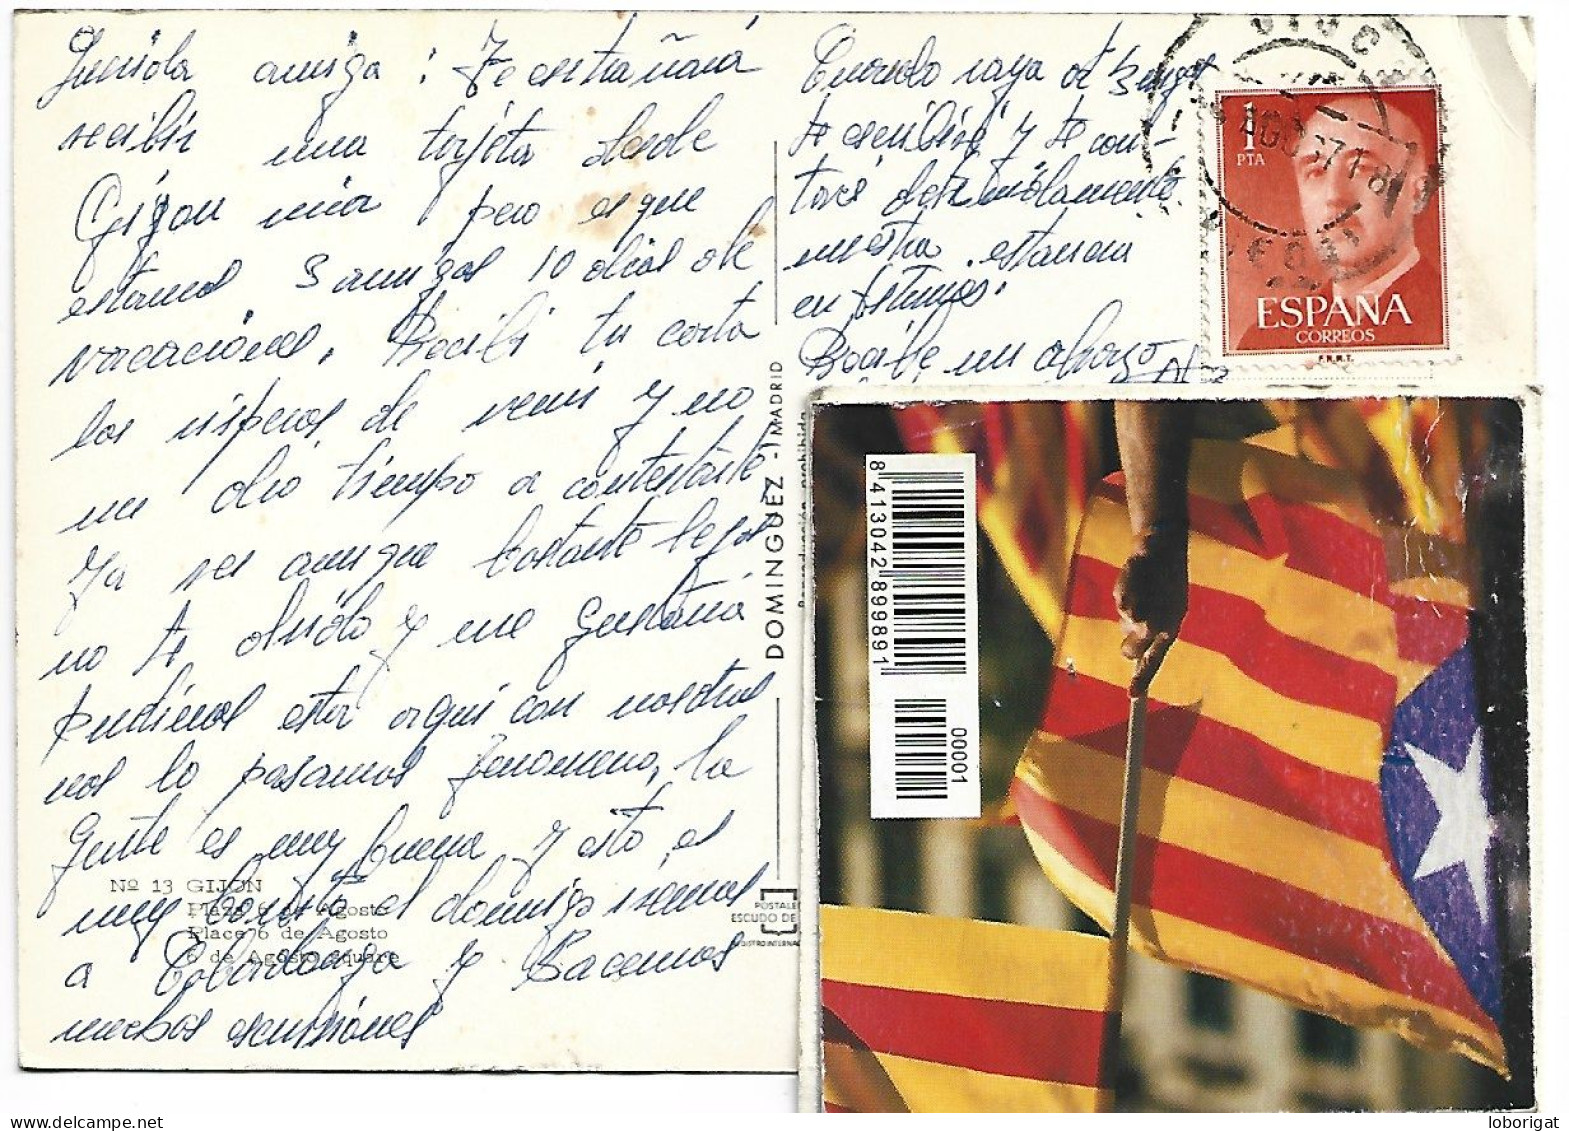 Querida amiga: Te extrañará
recibir una tarjeta desde
Gijon mia pero es que
estamos 3 amigas 10 dias de
vacaciones. Recibi tu carta
las visperas de venir y no
me dio tiempo a contestarte
Ya ves aunque bastante lejos
no te olvido y me gustaria
pudieras estar aqui con nosotras
nos lo pasamos fenomeno, la
gente es muy buena y esto es
muy bonito el domingo iremos
a Cobadonga y Hacemos
muchas escursiones
Cuando vaya de Burgos
te escribiré y te con-
taré detenidamente
nuestra estancia
en Asturias.
Recibe un abrazo
Nº 13 GIJON
Plaza 6 de Agosto
Place 6 de Agosto
6 de Agosto square
DOMINGUEZ - MADRID
prohibida
POSTALE
ESCUDO DE
1
PTA
ESPAÑA
CORREOS
F.N.M.T.
AGO 71
8 413042 899891
00001
loborigat